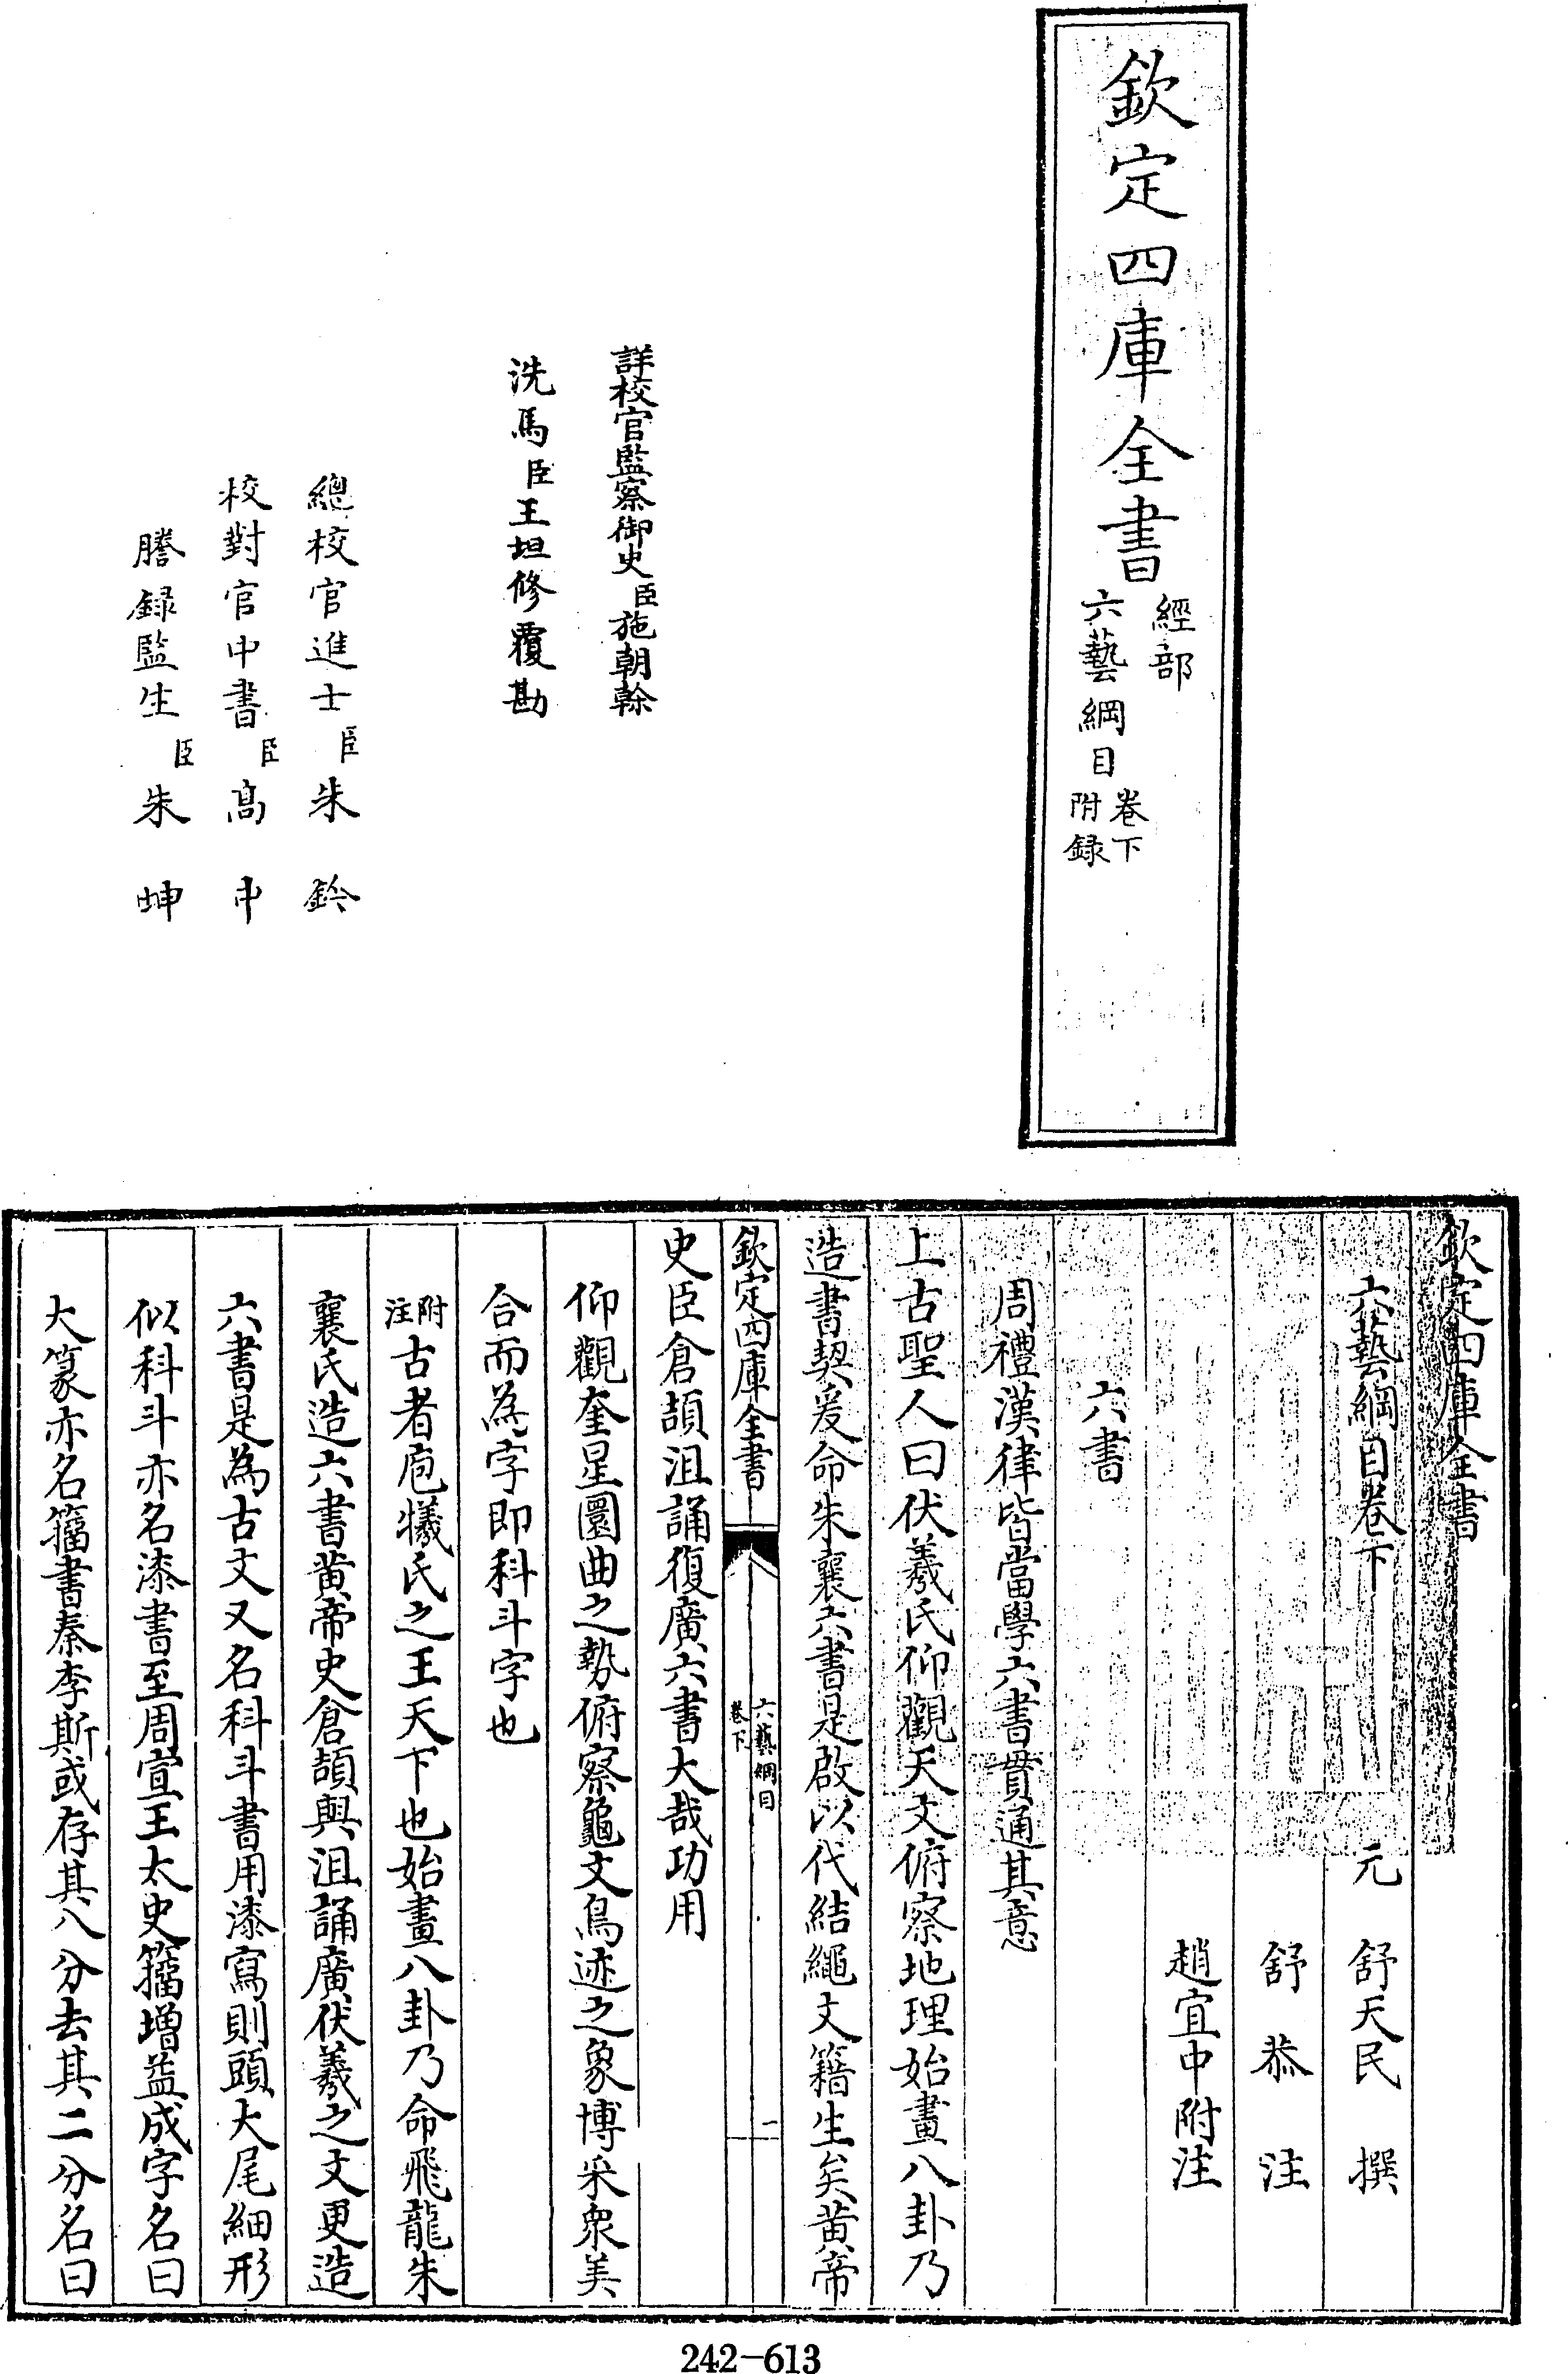 欽定四庫全書
經部
六藝綱目
卷下
附録
詳校官監察御史臣施朝榦
洗馬臣王坦修覆勘
總校官進士臣朱鈐
校對官中書臣高中
謄録監生臣朱坤
欽定四庫全書
六藝綱目卷下
元 舒天民 撰
舒恭 注
趙宜中附注
六書
周禮漢律皆當學六書貫通其意
上古聖人曰伏羲氏仰觀天文俯察地理始畫八卦乃
造書契爰命朱襄六書是啟以代結繩文籍生矣黄帝
欽定四庫全書
六藝綱目
卷下
一
史臣倉頡沮誦復廣六書大哉功用
仰觀奎星圜曲之勢俯察龜文鳥迹之象博采衆美
合而為字即科斗字也
附注古者庖犧氏之王天下也始畫八卦乃命飛龍朱
襄氏造六書黄帝史倉頡與沮誦廣伏羲之文更造
六書是為古文又名科斗書用漆寫則頭大尾細形
似科斗亦名漆書至周宣王太史籀增益成字名曰
大篆亦名籀書秦李斯或存其八分去其二分名曰
242-613